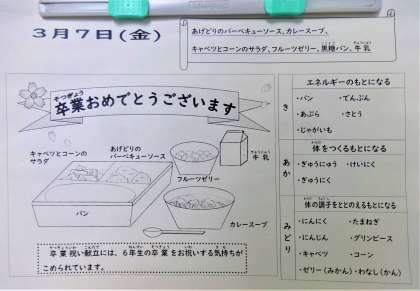 3月7日(金)
あげどりのバーベキューソース、カレースープ、
キャベツとコーンのサラダ、フルーツゼリー、黒糖パン、牛乳
卒業おめでとうございます
キャベツとコーンの
サラダ
あげどりの
バーベキューソース
フルーツゼリー
牛乳
パン
カレースープ
卒業祝い献立には、6年生の卒業をお祝いする気持ちが
こめられています。
き
エネルギーのもとになる
・パン ・でんぷん
・あぶら ・さとう
・じゃがいも
あか
体をつくるもとになる
・ぎゅうにゅう ・けいにく
・ぎゅうにく
みどり
体の調子をととのえるもとになる
・にんにく ・たまねぎ
・にんじん ・グリンピース
・キャベツ ・コーン
・ゼリー(みかん)・わなし(かん)